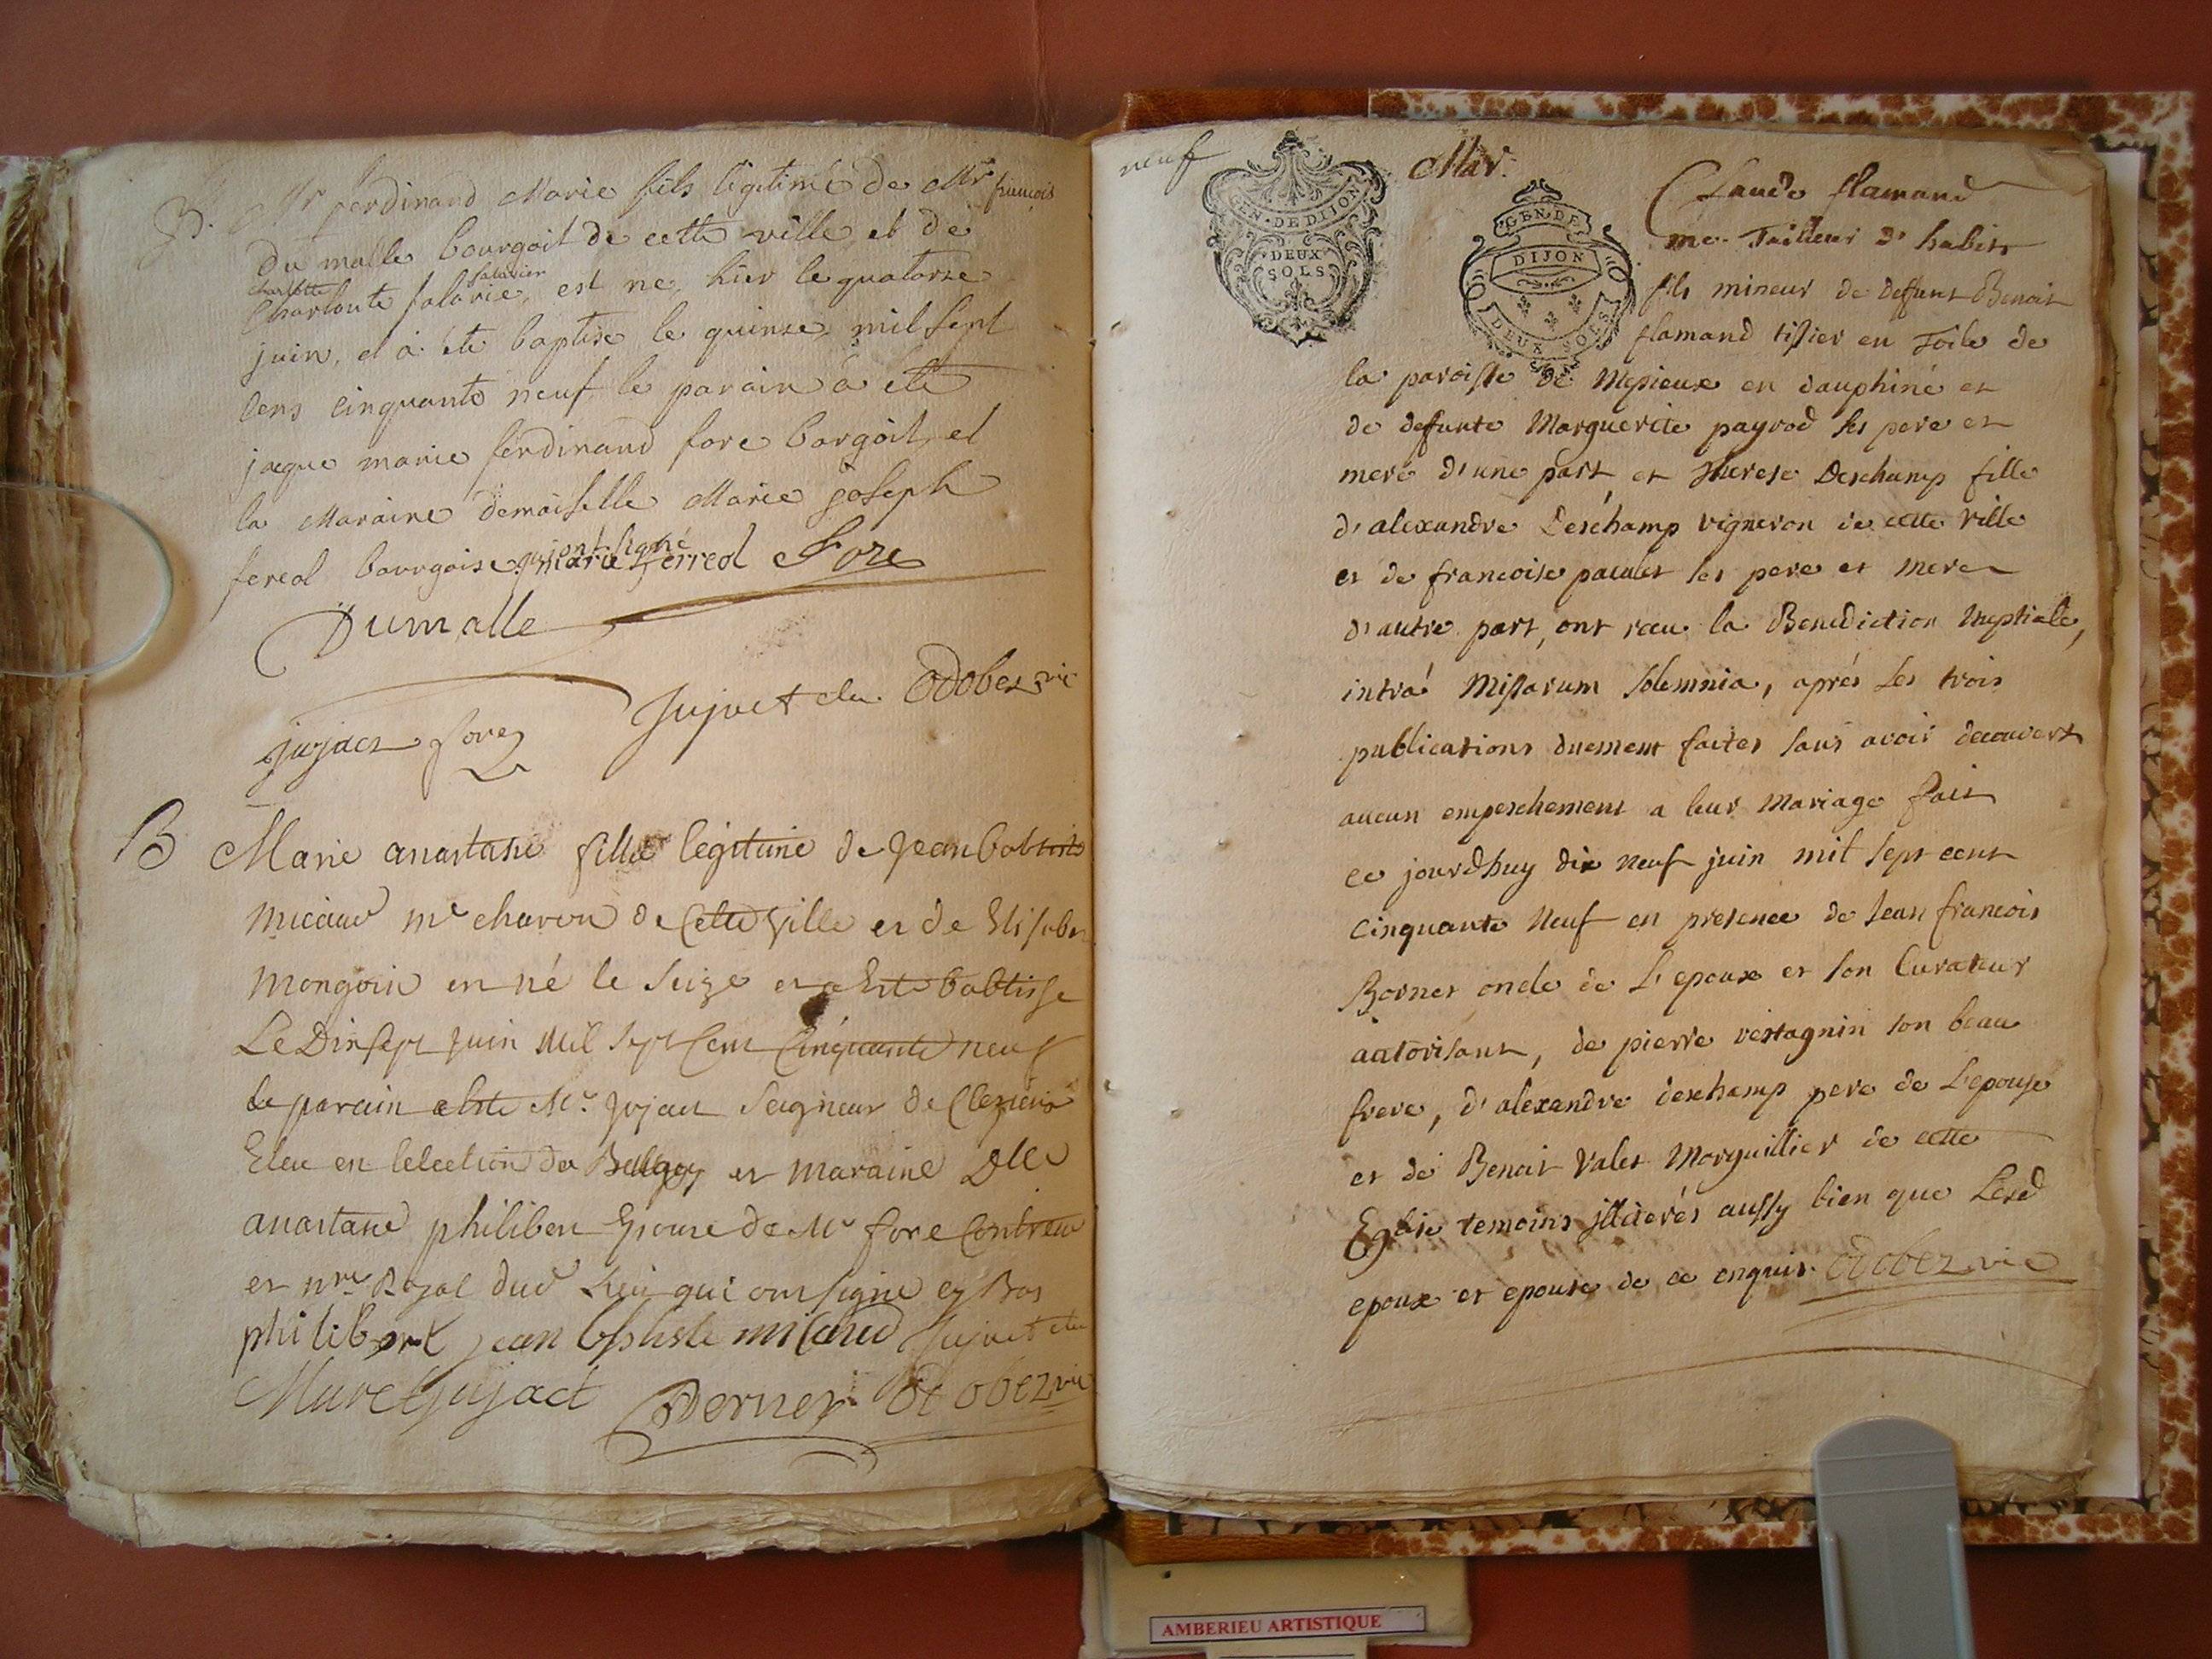 B. Mr ferdinand Marie fils legitime de Mr francois
Du malle bourgoit de cette ville et de
charlotte salavier
Charloute salavie, est ne hier le quatorze
juin, et a ete baptise le quinze mil sept
cens cinquante neuf le parain a ete
jacque marie ferdinand fore borgoit, et
la Maraine demoiselle Marie joseph
fereol bourgoise qui ont signé
marie ferreol Fore
Dumalle
Jujuet elu Odobez vic
jujact fore
B Marie anastasie fille legitime de Jean babtiste
micaud me charon de Cette Ville et de Elisabet
mongoin est né le seize et a Esté babtisse
Le Dix sept Juin Mil sept Cent Cinquante neuf
le parain a esté Mr. Jujact Seigneur de
Eleu en lelection du Bugey et maraine Dlle
anastasie philibert Epouse de Mr fore
et nre Royal dud lieu qui ont signé cy Bas
philibert jean baptiste micaud Jujuet elu
Muret jujact Derner Odobez vic
neuf
Mar.
GEN·DE DIJON
DEUX
SOLS
GEN·DE
DIJON
DEUX SOLS
Claude flamand
me. Tailleur d'habits
fils mineur de deffunt Benoit
flamand tissier en toile de
la paroisse de Mepieux en dauphiné et
de deffunte Marguerite payrod ses pere et
mere d'une part, et Therese Deschamp fille
d'alexandre Deschamp vigneron de cette ville
et de francoise ses pere et mere
d'autre part, ont recu la Benediction Nuptiale,
intrà Missarum solemnia, aprés les trois
publications duement faites sans avoir decouvert
aucun empeschement a leur mariage fait
ce jourdhuy dix neuf juin mil sept cent
cinquante neuf en presence de Jean francois
Bornet oncle de L'epoux et son Curateur
autorisant, de pierre vestagnin son beau
frere, d'alexandre deschamp pere de L'epouse
et de Benoit Valet Morguillier de cette
Eglise temoins jllitérés aussy bien que Lesd
epoux et epouse de ce enquis. Odobez vic
AMBERIEU ARTISTIQUE